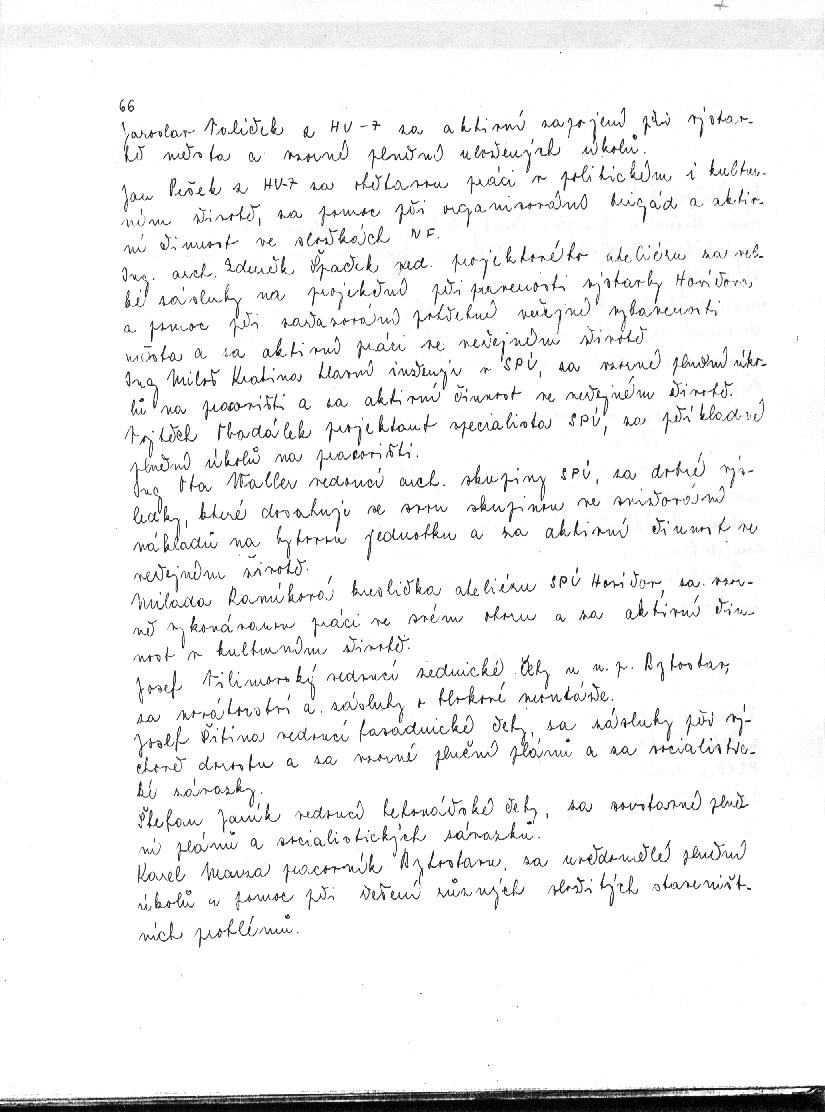 66
Jaroslav Valíček z HV-7 za aktivní zapojení při výstav-
bě města a vzorné plnění uložených úkolů.
Jan Pešek z HV-7 za obětavou práci v politickém i kultur-
ním životě, za pomoc při organisování brigád a aktiv-
ní činnost ve složkách NF.
Ing. arch. Zdeněk Špaček ved. projektového ateliéru za vel-
ké zásluhy na projekční připravenosti výstavby Havířova,
a pomoc při zadavování potřebné veřejné vybavenosti
města a za aktivní práci ve veřejném životě
Ing Miloš Kratina hlavní inženýr v SPÚ, za vzorné plnění úko-
lů na pracovišti a za aktivní činnost ve veřejném životě.
Vojtěch Obadálek projektant specialista SPÚ, za příkladné
plnění úkolů na pracovišti.
Ing Ota Waller vedoucí arch. skupiny SPÚ, za dobré vý-
ledky, které dosahuje se svou skupinou ve snižování
nákladů na bytovou jednotku a za aktivní činnost ve
veřejném životě.
Milada Raníková kreslička ateliéru SPÚ Havířov, za vzor-
ně vykonávanou práci ve svém oboru a za aktivní čin-
nost v kulturním životě.
Josef Vilimovský vedoucí zednické čety u n. p. Bytostav,
za novátorství a zásluhy o blokové montáže.
Josef Pitina vedoucí fasádnické čety, za zásluhy při vý-
chově dorostu a za vzorné plnění plánů a za socialistic-
ké závazky.
Štefan Janík vedoucí betonářské čety, za soustavné plně
ní plánů a socialistických závazků.
Karel Mansa pracovník Bytostavu, za uvědomělé plnění
úkolů a pomoc při řešení různých složitých staveništ-
ních problémů.